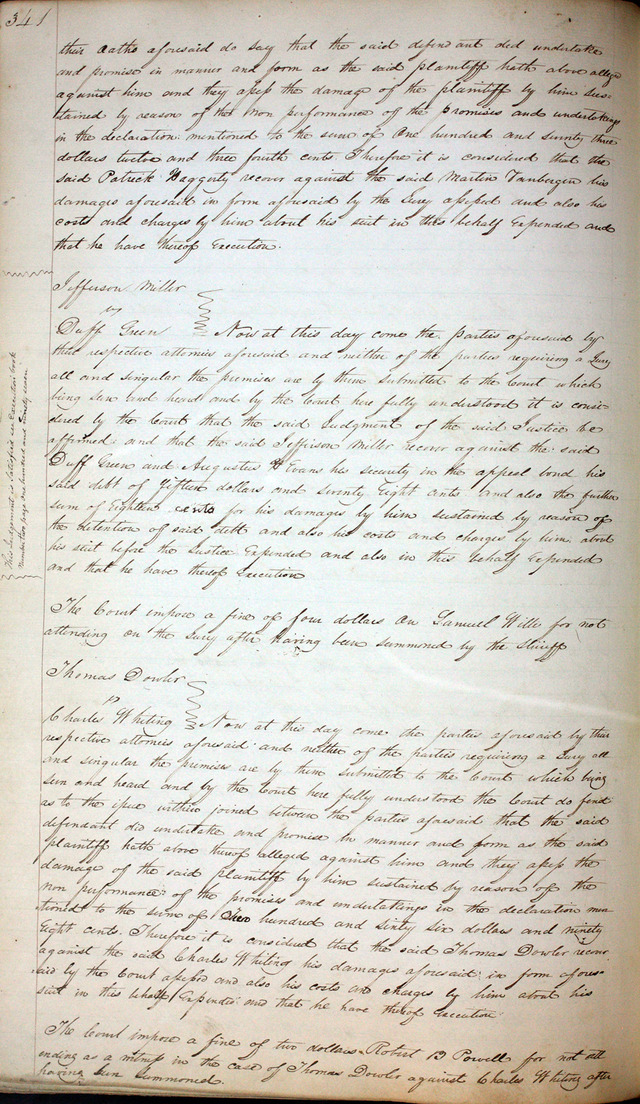 341
their oaths aforesaid do say that the said defendant did undertake
and promise in manner and form as the said plaintiff hath above alleged
against him and they assess the damage of the plaintiff by him sus-
tained by reason of the Non performance of the promises and undertakings
in the declaration mentioned to the sum of One hundred and seventy three
dollars twelve and three fourth cents. Therefore it is considered that the
said Patrick Haggerty recover against the said Martin Vanbergen his
damages aforesaid in form aforesaid by the Jury assessed and also his
costs and charges by him about his suit in this behalf Expended and
that he have thereof Execution.
Jefferson Miller
vs
Duff Green Now at this day come the parties aforesaid by
their respective attornies aforesaid and neither of the parties requiring a Jury
all and singular the premises are by them submitted to the Court which
being seen and heard and by the Court here fully understood it is consi-
dered by the Court that the said Judgment of the said Justice be
affirmed: and that the said Jefferson Miller recover against the said
Duff Green and Augustus H Evans his security in the appeal bond his
said debt of Fifteen dollars and seventy Eight cents and also the further
sum of Eighteen cents for his damages by him sustained by reason of
the detention of said debt and also his costs and charges by him about
his suit before the Justice Expended and also in this behalf Expended
and that he have thereof Execution
This Judgment is Satisfied see Execution book
number two page one hundred and ninety seven
The Court impose a fine of four dollars on Samuel Wille for not
attending on the Jury after having been summoned by the Sheriff
Thomas Dowler
vs
Charles Whiting Now at this day come the parties aforesaid by their
respective attornies aforesaid and neither of the parties requiring a Jury all
and singular the premises are by them submitted to the Court which being
seen and heard and by the Court here fully understood the Court do find
as to the issue within joined between the parties aforesaid that the said
defendant did undertake and promise in manner and form as the said
plaintiff hath above thereof alleged against him and they assess the
damage of the said plaintiff by him sustained by reason of the
non performance of the promises and undertakings in the declaration men
tioned to the sum of One hundred and sixty six dollars and ninety
Eight cents. Therefore it is considered that the said Thomas Dowler recover
against the said Charles Whiting his damages aforesaid in form afore-
said by the Court assessed and also his costs and charges by him about his
suit in this behalf Expended and that he have thereof Execution.
The Court impose a fine of two dollars Robert B Powell for not att
ending as a witness in the case of Thomas Dowler against Charles Whiting after
having been summoned.